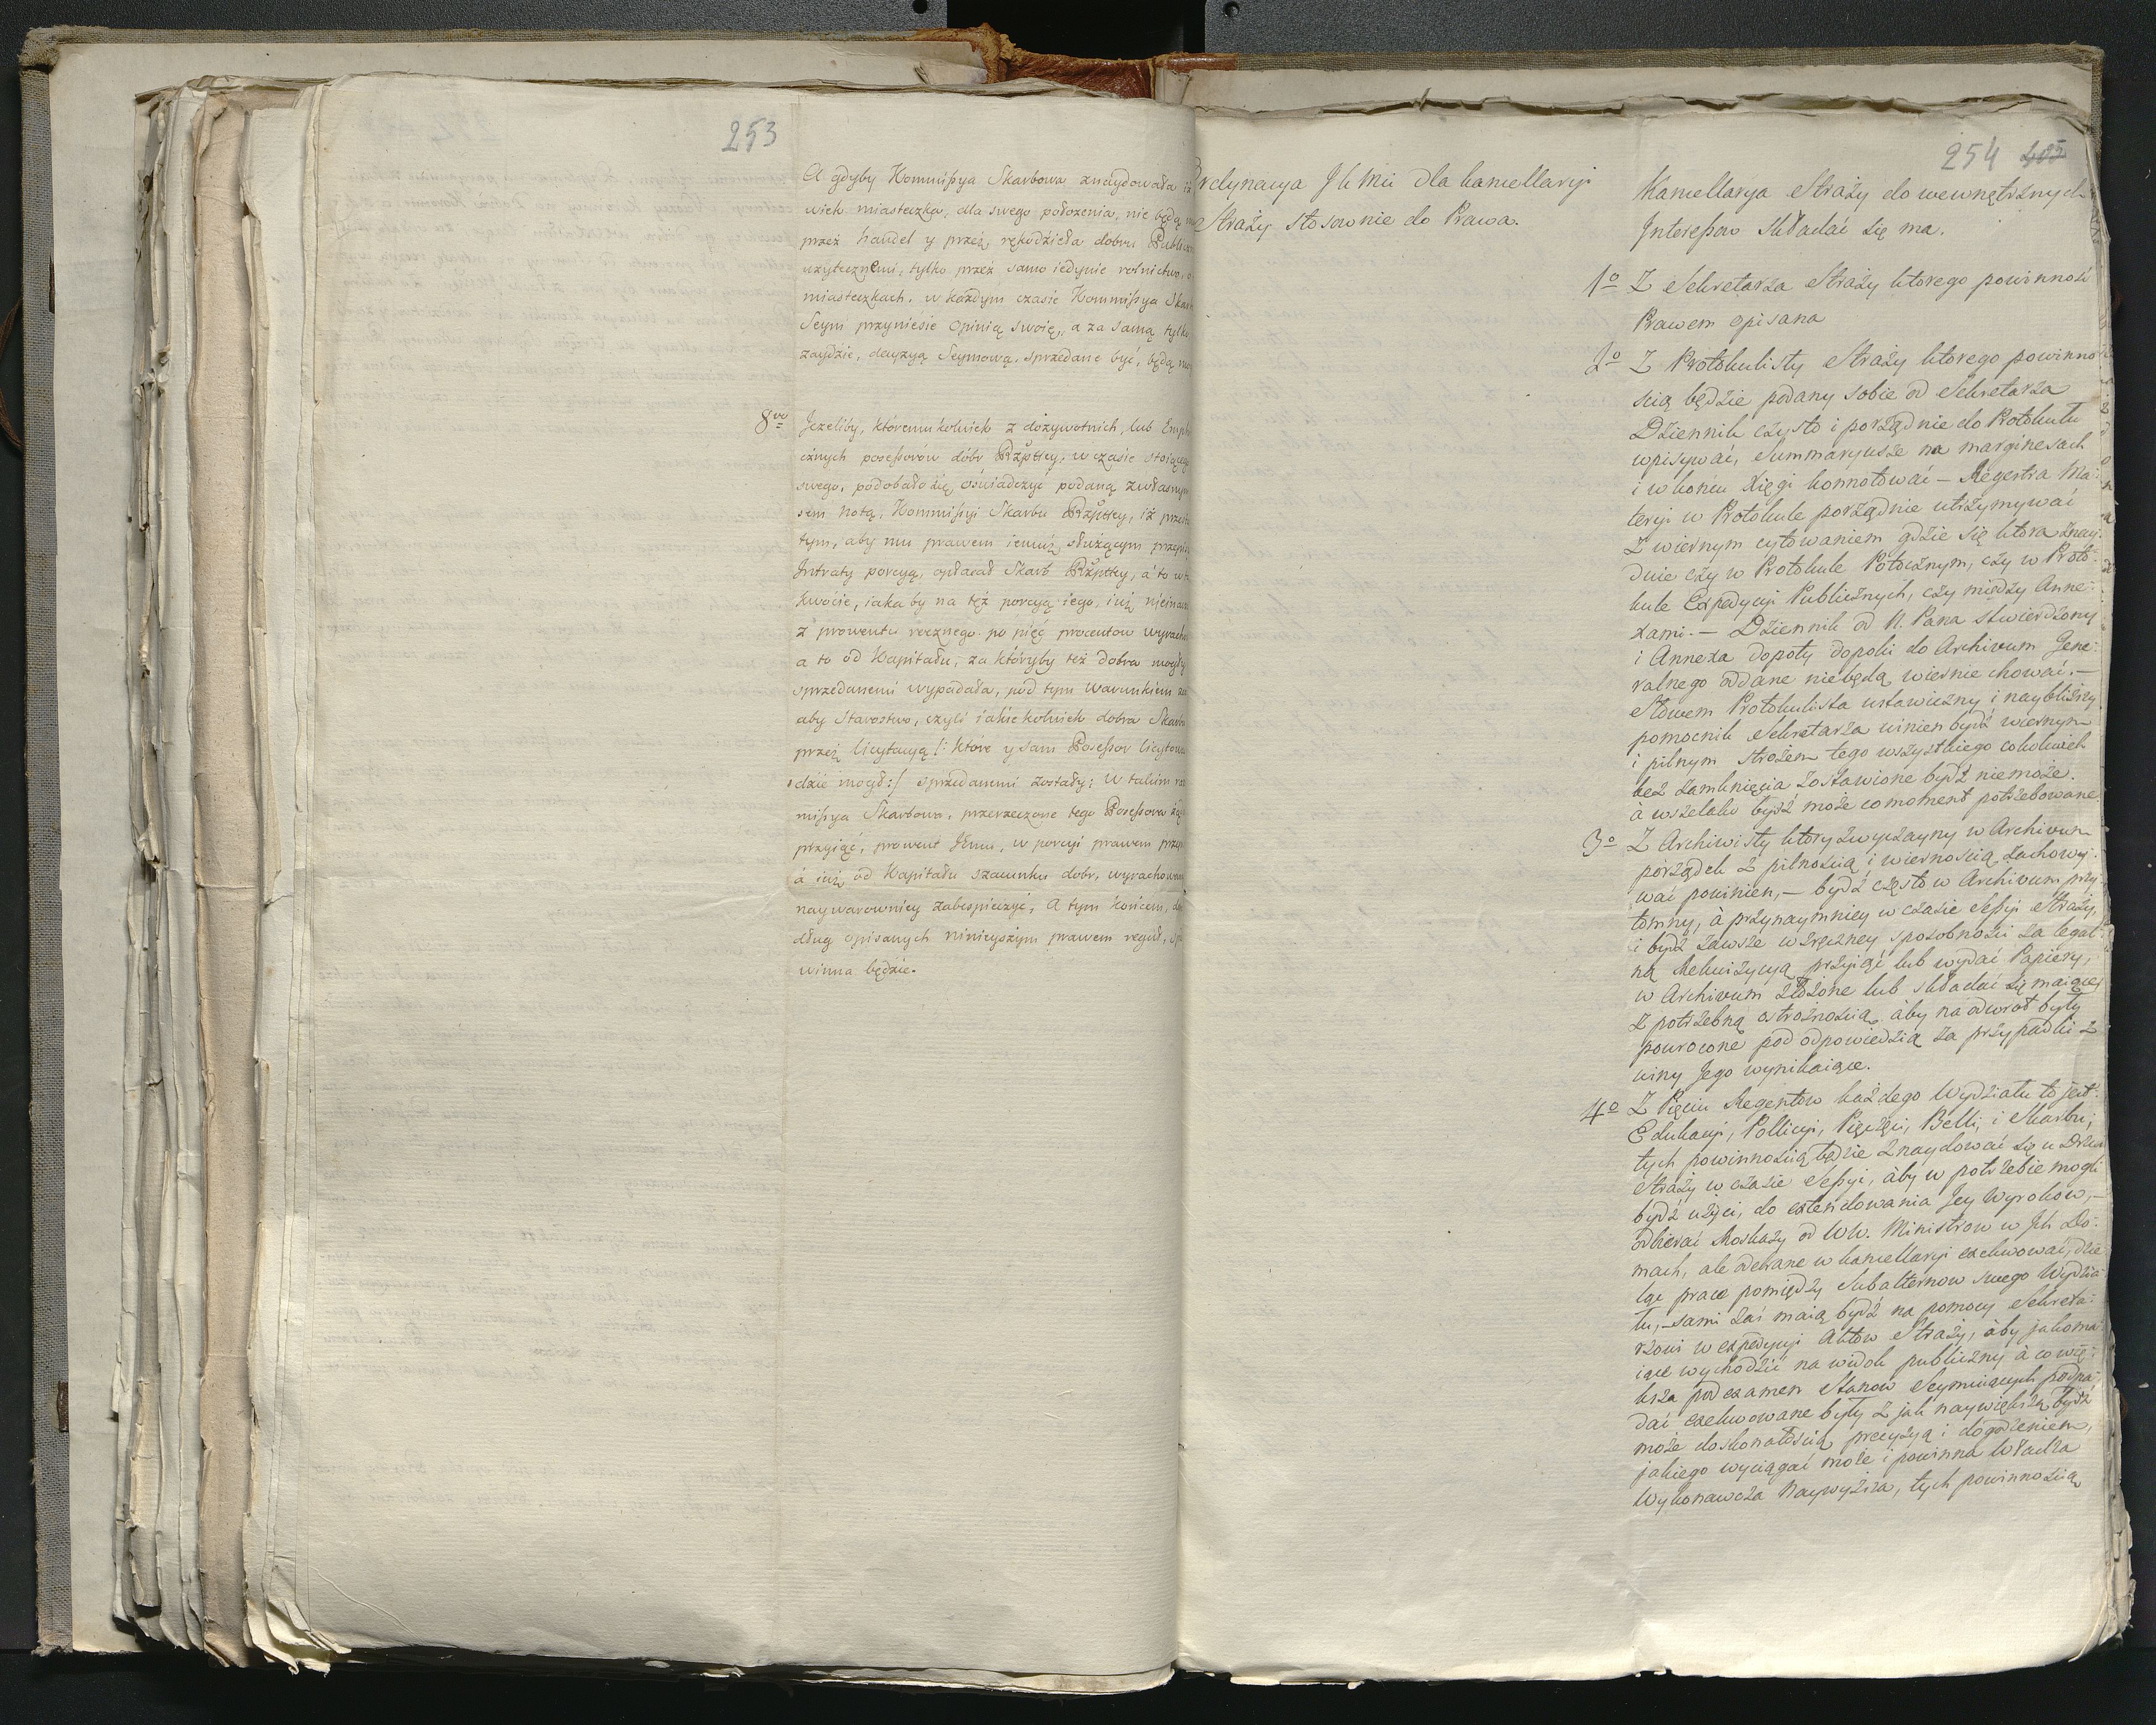 253
A gdyby Kommissya Skarbowa znaydowała iż
wiek miasteczka, dla swego położenia, nie będą
przez handel y przez rękodzieła dobru Publi
użytecznemi, tylko przez samo iedynie rolnictwo,
miasteczkach, w każdym czasie Kommissya Skar
Seym przyniesie Opinią swoię, a za samą tylko
zaydzie, decyzyą Seymową, sprzedane być, będą
8vo Jeżeliby, któremukolwiek z dożywotnich, lub Emphi
cznych possessorów dóbr Rzptey, w czasie
swego, podobało się, oświadczyć podaną zwłasnym
sem Notą, Kommissyi Skarbu Rzptey, iż
tym, aby mu prawem iemuż służącym
Intraty porcyą, opłacał Skarb Rzptey, á to w
kwocie, iaka by na też porcyą iego, iuż nieina
z prowentu rocznego po pięć procentow wyrach
a to od Kapitału, za któryby też dobra mogły
sprzedanemi wypadała, pod tym warunkiem
aby Starostwo, czyli iakiekolwiek dobra Skarb
przez licytacyą /: które y sam Posessor licytow
dzie mogł :/ sprzedanemi zostały; W takim
missya Skarbowa, przerzeczone tego Possessora
przyiąć, prowent Jemu, w porcyi prawem
á iuż od Kapitału szacunku dobr, wyrachowan
naywarowniey zabespieczyć, A tym końcem,
dług opisanych ninieyszym prawem reguł,
winna będzie.
254
Ordynacya JKMci dla kancellaryi
Straży stosownie do Prawa.
Kancellarya Straży do wewnętrznych
Interessow składać się ma.
1o Z Sekretarza Straży ktorego powinność
Prawem opisana
2o Z Protokulisty Straży ktorego powinno
scią będzie podany sobie od Sekretarza
Dziennik czysto i porządnie do Protokułu
wpisywać, Summaryusze na marginesach
i w koncu Xięgi konnotować – Regestra Ma-
teryi w Protokule porządnie utrzymywać
z wiernym cytowaniem gdzie się ktora znay-
duie czy w Protokule Potocznym, czy w Proto-
kule Expedycyi Publicznych, czy między Anne-
xami. – Dziennik od N. Pana stwierdzony
i Annexa dopoty dopoki do Archivum Gene-
ralnego oddane niebędą wiernie chować. –
Słowem Protokulista ustawiczny i naybliższy
pomocnik Sekretarza winien bydź wiernym
i pilnym stróżem tego wszystkiego cokolwiek
bez zamknięcia zostawione bydź niemoże.
à wszelako bydź może comoment potrzebowane.
3o Z Archiwisty ktory zwyczayny w Archivum
porządek z pilnoscią i wiernoscią zachowy-
wać powinien, – bydź często w Archivum przy-
tomny, a przynaymniey w czasie Sessyi Straży,
i bydź zawsze w zręczney sposobnosci za legal-
ną Rekwizycyą przyiąć lub wydać Papiery,
w Archivum złożone lub składać się maiące,
z potrzebną ostrożnoscią àby na odwrot były
powrocone pod odpowiedzią za przypadki z
winy Jego wynikaiące.
4o Z Pięciu Regentow każdego Wydziału to jest:
Edukacyi, Pollicyi, Pieczęci, Belli, i Skarbu;
tych powinnoscią będzie znaydować się u Drzwi
Straży w czasie Sessyi, àby w potrzebie mogli
bydź użyci, do extendowania Jey Wyrokow, –
odbierać Roskazy od WW. Ministrow w Jch Do-
mach, ale odebrane w kancellaryi exekwować, dzie-
ląc prace pomiędzy Subalternow swego Wydzia-
łu, – sami zaś maią bydź na pomocy Sekreta-
rzowi w expedycyi Aktow Straży, àby jako ma-
iące wychodzić na widok publiczny à co wię-
ksza pod examen Stanow Seymuiących podpa-
dać exekwowane były z jak naywiększą bydź
może doskonałoscią, precyzyą i dogodzeniem,
jakiego wyciągać może i powinna Władza
Wykonawcza Naywyższa, tych powinnoscią